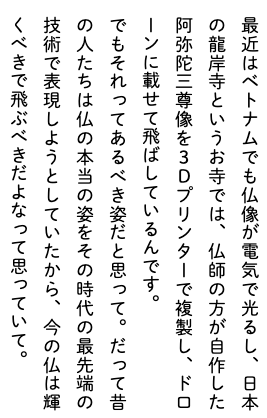 最近はベトナムでも仏像が電気で光るし、日本
の龍岸寺というお寺では、仏師の方が自作した
阿弥陀三尊像を3Dプリンターで複製し、ドロ
ーンに載せて飛ばしているんです。
でもそれってあるべき姿だと思って。だって昔
の人たちは仏の本当の姿をその時代の最先端の
技術で表現しようとしていたから、今の仏は輝
くべきで飛ぶべきだよなって思っていて。